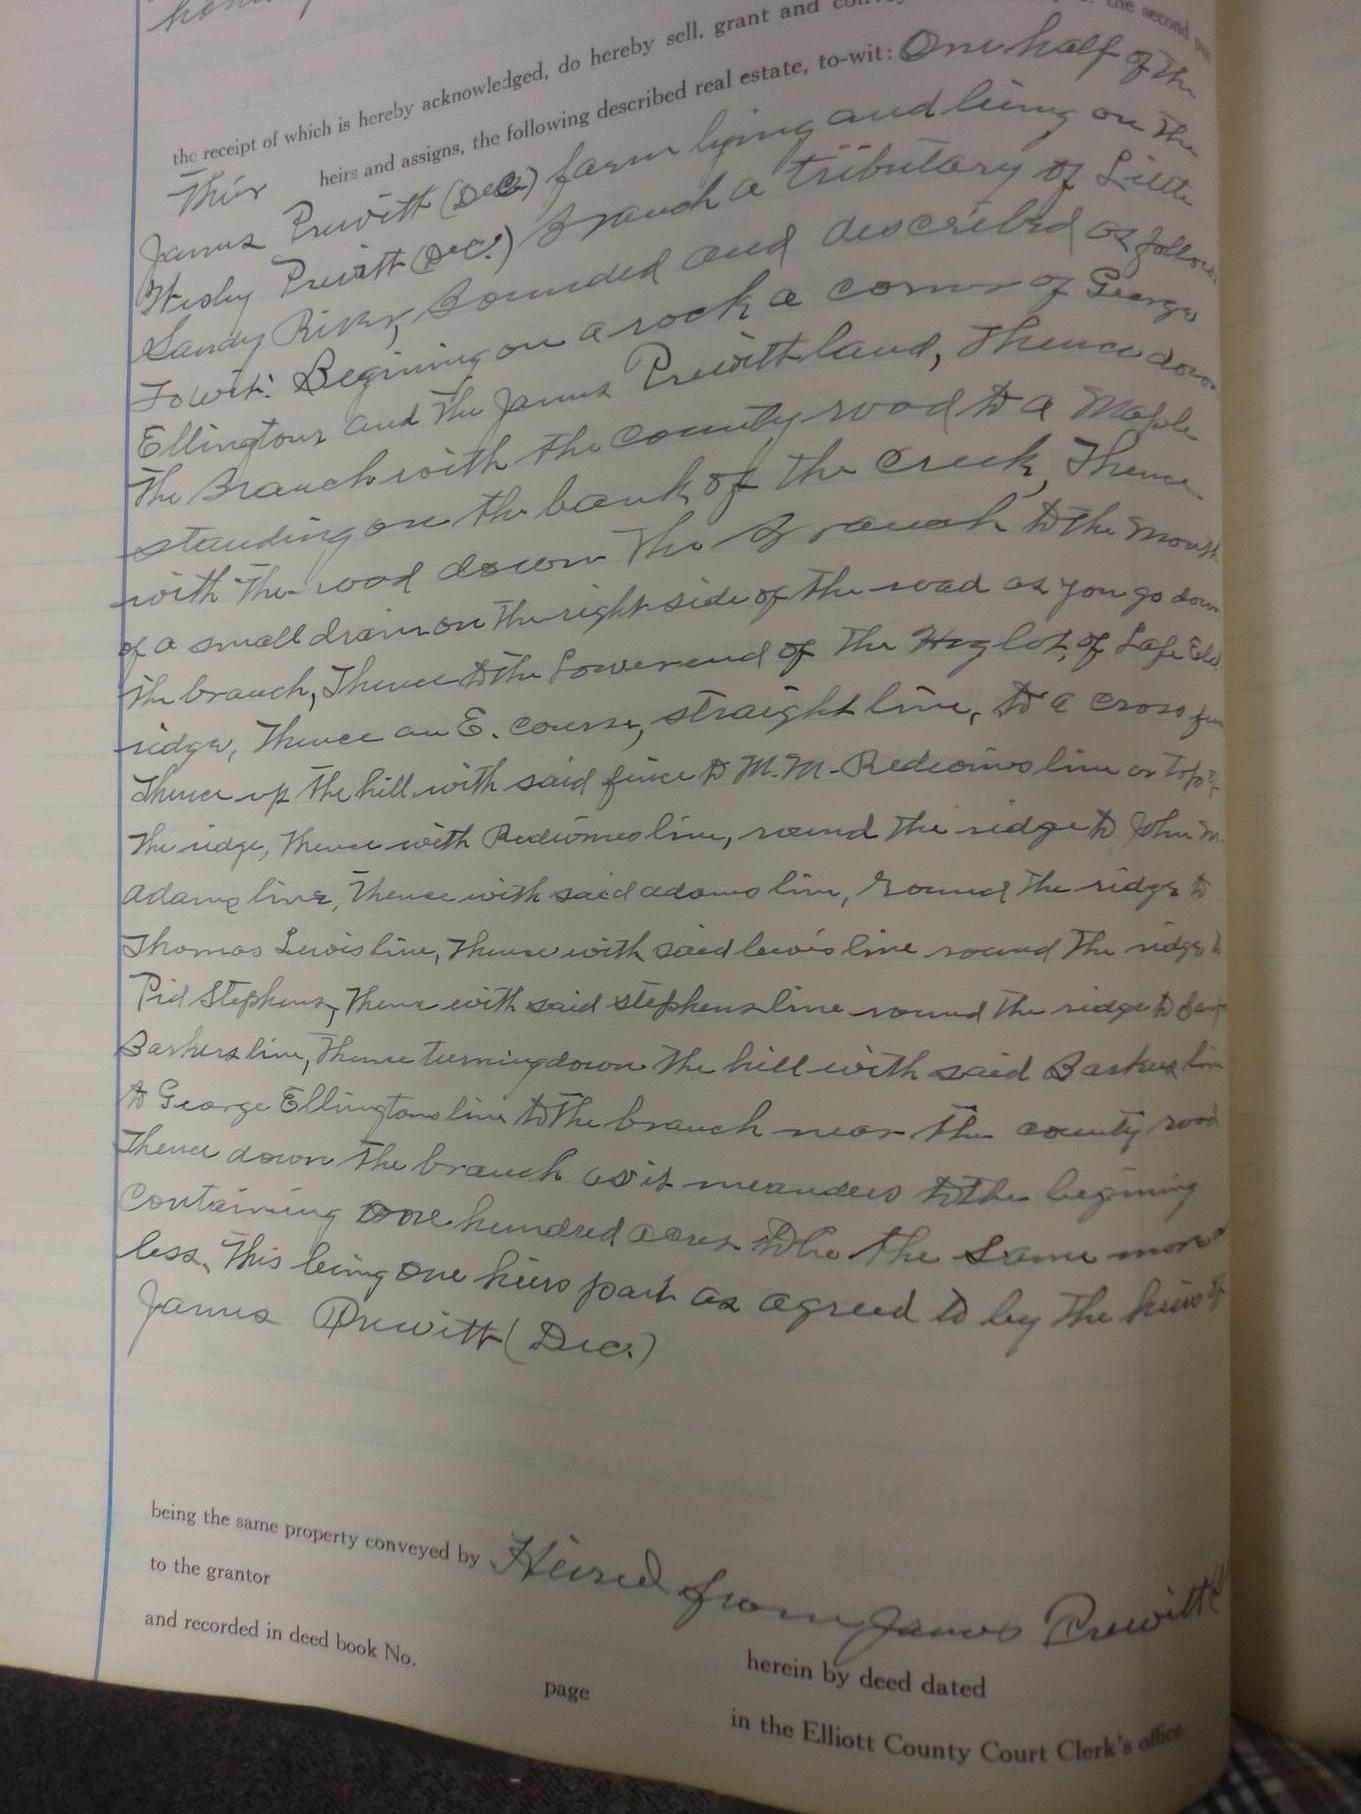 the receipt of which is hereby acknowledged, do hereby sell, grant and the second
Thier heirs and assigns, the following described real estate, to-wit: One half of the
James Prewitt (Dec.) farm lying and being on the
Wesley Prewitt (Dec.) Branch a tributary of Little
Sandy River, Bounded and described as follows
Towit: Begining on a rock a corner of George
Ellingtons and the James Prewitt land, Thence down
The Branch with the county road to a Maple
standing on the bank of the creek, Thence
with the road down the Branch to the Mouth
of a small drain on the right side of the road as you go down
the branch, Thence to the Lower end of the Hog lot, of Lafe
ridge, Thence an E. course, straight line, to a cross
Thence up the hill with said fence to M.M. Redwines line on top
the ridge, thence with Redwines line, round the ridge to John M.
Adams line, Thence with said adams line, round the ridge to
Thomas Lewis line, Thence with said lewis line round the ridge to
Pid Stephens, Thence with said stephens line round the ridge to
Barkers line, Thence turning down the hill with said Barkers line
to George Ellingtons line to the branch near the county road
Thence down the branch as it meanders to the begining
Containing one hundred acres to be the same more
less. This being one heirs part as agreed to by the heirs of
James Prewitt (Dec.)
being the same property conveyed by Heired from James Prewitt
to the grantor herein by deed dated
and recorded in deed book No. page in the Elliott County Court Clerk's office